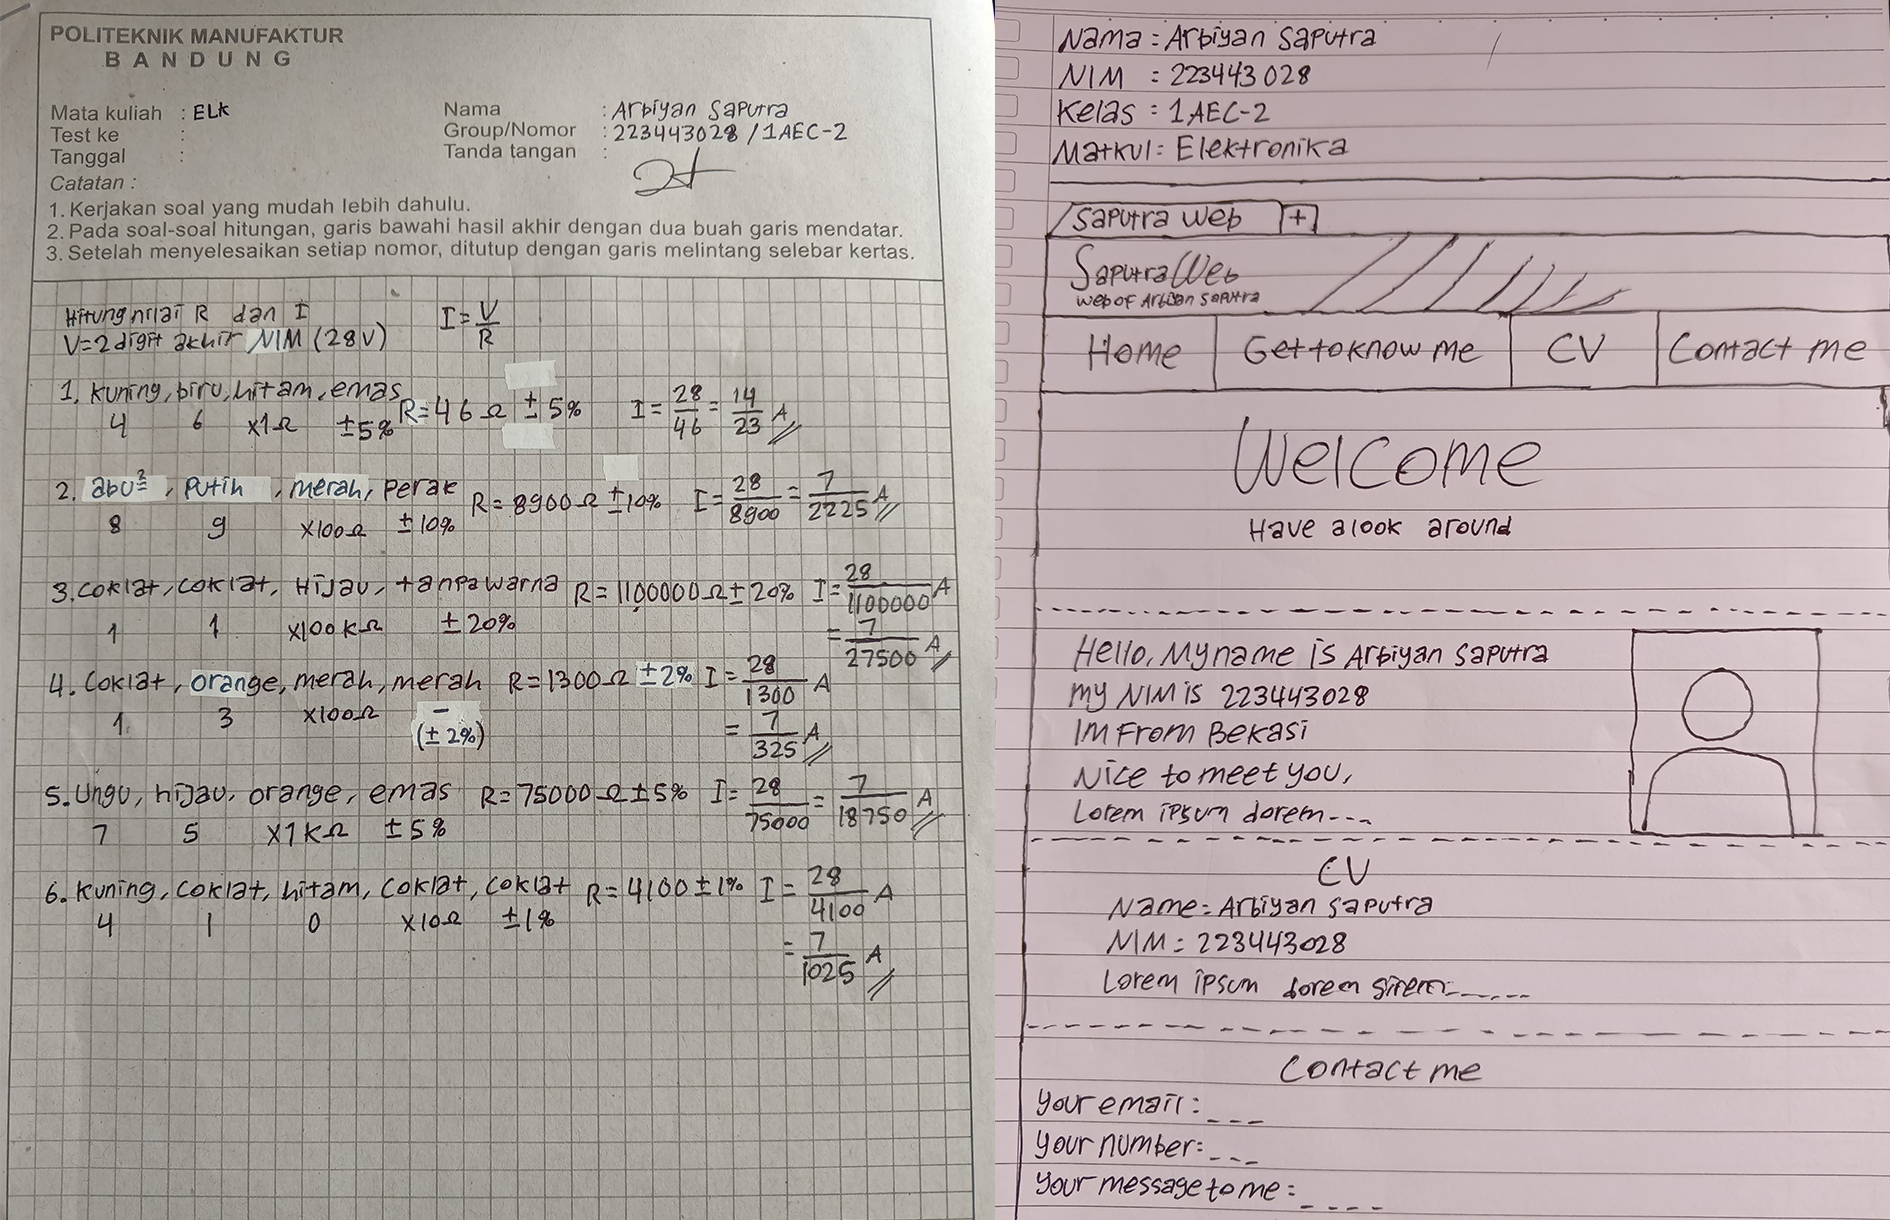 POLITEKNIK MANUFAKTUR
BANDUNG
Mata kuliah : ELK
Test ke :
Tanggal :
Nama : Arbiyan Saputra
Group/Nomor : 223443028 / 1AEC-2
Tanda tangan :
Catatan :
1. Kerjakan soal yang mudah lebih dahulu.
2. Pada soal-soal hitungan, garis bawahi hasil akhir dengan dua buah garis mendatar.
3. Setelah menyelesaikan setiap nomor, ditutup dengan garis melintang selebar kertas.
Hitung nilai R dan I
V=2 digit akhir NIM (28V)
I = V/R
1. kuning, biru, hitam, emas R=46 Ω ± 5% I = 28/46 = 14/23 A
4 6 x1Ω ±5%
2. abu², putih, merah, perak R=8900Ω ±10% I = 28/8900 = 7/2225 A
8 9 x100Ω ±10%
3. Coklat, coklat, Hijau, tanpa warna R=1100000Ω±20% I = 28/1100000 A
1 1 x100KΩ ±20%
= 7/27500 A
4. Coklat, orange, merah, merah R=1300Ω ±2% I = 28/1300 A
1 3 x100Ω - (±2%)
= 7/325 A
5. Ungu, hijau, orange, emas R=75000Ω±5% I = 28/75000 = 7/18750 A
7 5 x1KΩ ±5%
6. kuning, coklat, hitam, coklat, coklat R=4100±1% I = 28/4100 A
4 1 0 x10Ω ±1%
= 7/1025 A
Nama : Arbiyan Saputra
NIM : 223443028
Kelas : 1AEC-2
Matkul : Elektronika
Saputra Web +
Saputra Web
Web OF Arbiyan Saputra
Home Get to know me CV Contact me
Welcome
Have a look around
Hello, My name is Arbiyan Saputra
my NIM is 223443028
IM From Bekasi
Nice to meet you,
Lorem ipsum dorem---
CV
Name: Arbiyan Saputra
NIM : 223443028
Lorem ipsum dorem
Contact me
Your email : ---
Your number: ---
Your message to me : ----